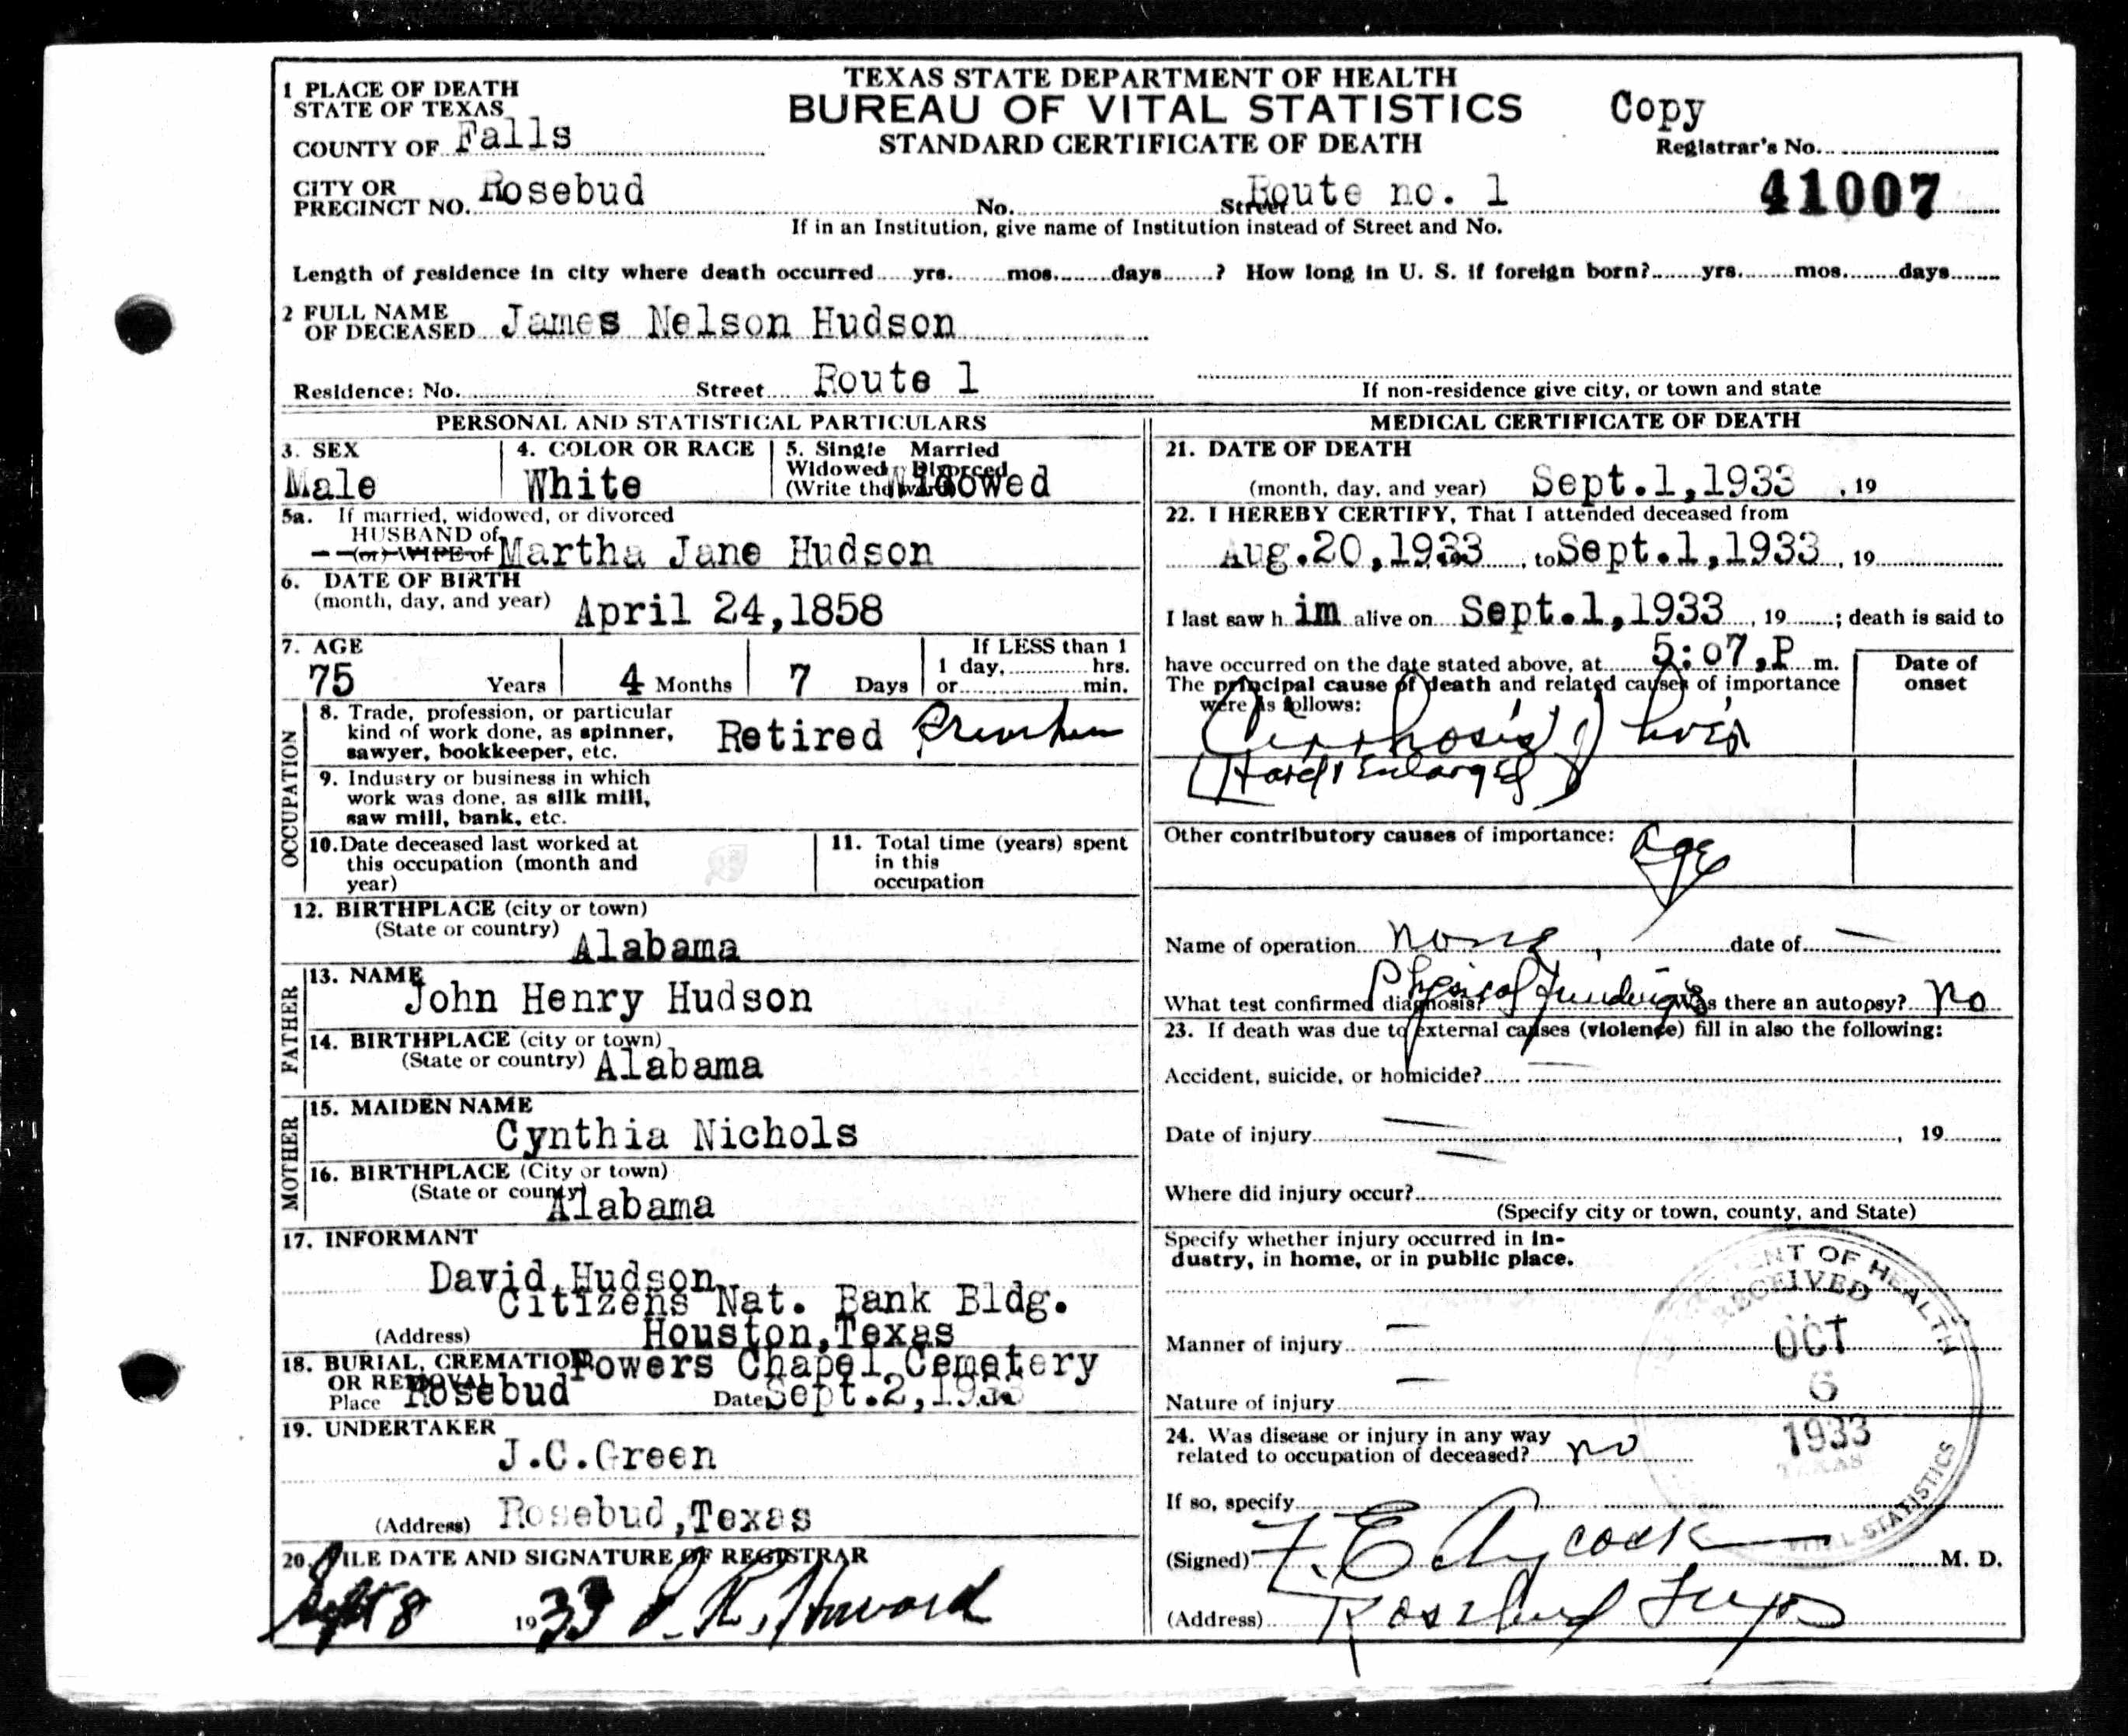 TEXAS STATE DEPARTMENT OF HEALTH
BUREAU OF VITAL STATISTICS
STANDARD CERTIFICATE OF DEATH
Copy
Registrar's No.
41007
1 PLACE OF DEATH
STATE OF TEXAS
COUNTY OF Falls
CITY OR
PRECINCT NO. Rosebud No. Street Route no. 1
If in an Institution, give name of Institution instead of Street and No.
Length of residence in city where death occurred yrs. mos. days ? How long in U. S. if foreign born? yrs. mos. days
2 FULL NAME
OF DECEASED James Nelson Hudson
Residence: No. Street Route 1
If non-residence give city, or town and state
PERSONAL AND STATISTICAL PARTICULARS
3. SEX
Male
4. COLOR OR RACE
White
5. Single Married
Widowed Divorced
(Write the word) Widowed
5a. If married, widowed, or divorced
HUSBAND of
(or) WIFE of Martha Jane Hudson
6. DATE OF BIRTH
(month, day, and year) April 24,1858
7. AGE
75 Years 4 Months 7 Days
If LESS than 1
1 day, hrs.
or min.
OCCUPATION
8. Trade, profession, or particular
kind of work done, as spinner,
sawyer, bookkeeper, etc.
Retired
9. Industry or business in which
work was done, as silk mill,
saw mill, bank, etc.
10. Date deceased last worked at
this occupation (month and
year)
11. Total time (years) spent
in this
occupation
12. BIRTHPLACE (city or town)
(State or country) Alabama
FATHER
13. NAME
John Henry Hudson
14. BIRTHPLACE (city or town)
(State or country) Alabama
MOTHER
15. MAIDEN NAME
Cynthia Nichols
16. BIRTHPLACE (City or town)
(State or county) Alabama
17. INFORMANT
David Hudson
Citizens Nat. Bank Bldg.
(Address) Houston,Texas
18. BURIAL, CREMATION Powers Chapel Cemetery
OR REMOVAL
Place Rosebud Date Sept.2,1933
19. UNDERTAKER
J.C.Green
(Address) Rosebud,Texas
20. FILE DATE AND SIGNATURE OF REGISTRAR
Sept 8 1933 R. Howard
MEDICAL CERTIFICATE OF DEATH
21. DATE OF DEATH
(month, day, and year) Sept.1,1933 , 19
22. I HEREBY CERTIFY, That I attended deceased from
Aug.20,1933 , to Sept.1,1933 , 19
I last saw h im alive on Sept.1,1933 , 19 ; death is said to
have occurred on the date stated above, at 5:07,P m.
The principal cause of death and related causes of importance
were as follows:
Date of
onset
Cirrhosis of Liver
(Hard & Enlarged)
Other contributory causes of importance: Age
Name of operation None , date of —
What test confirmed diagnosis? Physical Findings Was there an autopsy? No
23. If death was due to external causes (violence) fill in also the following:
Accident, suicide, or homicide? —
Date of injury — , 19
Where did injury occur? —
(Specify city or town, county, and State)
Specify whether injury occurred in in-
dustry, in home, or in public place.
Manner of injury —
Nature of injury —
24. Was disease or injury in any way
related to occupation of deceased? no
If so, specify
(Signed) F. E. Aycock M. D.
(Address) Rosebud Texas
OF HEALTH
RECEIVED
OCT
6
1933
TEXAS
VITAL STATISTICS